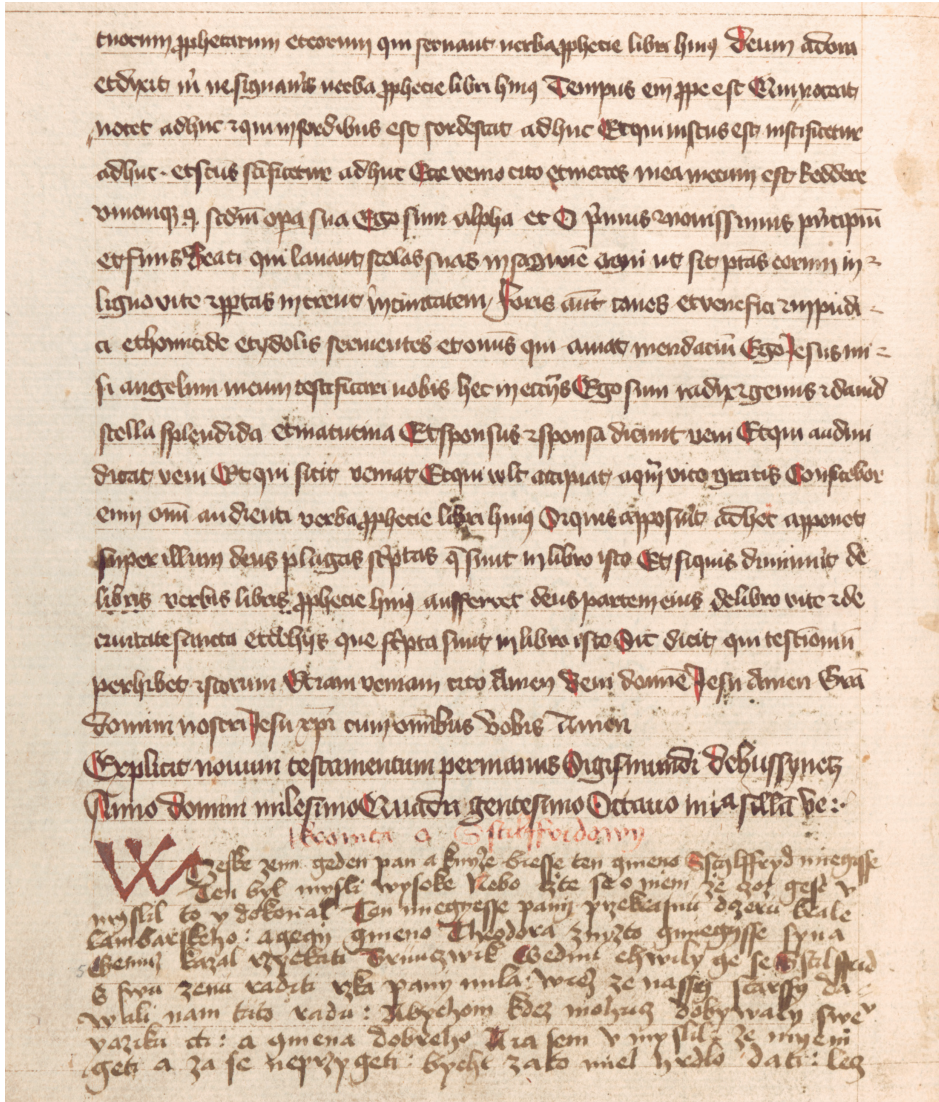 tuorum ꝓphetarum et eorum qui seruant uerba ꝓphecie libri huiꝰ Deum adora
et dixit m̃ ne signaũis uerba ꝓphecie libri huiꝰ Tempus em̃ ꝓpe est Qui nocet
nocet adhuc ⁊ qui in sordibus est sordescat adhuc Et qui iustus est iustificetur
adhuc · et sc̃us sc̃ificetur adhuc Ecce venio cito et merces mea mecum est Reddere
vnicuiqꝫ sc̃dm̃ oꝑa sua Ego sum alpha et O p̃mus ⁊ nouissimus p̃ncipiũ
et finis Beati qui lauant stolas suas in sagwiẽ agni ut sit ptãs eorum in
ligno vite ⁊ ꝑ portas intrent in ciuitatem Foris aũt canes et venefici ⁊ inpudi
ci et homicide et ydolis seruientes et omĩs qui amat mendaciũ Ego Jesus mi
si angelum meum testificari uobis hec in ecc̃ijs Ego sum radix ⁊ genus ⁊ dauid
stella splendida et matutina Et sponsus ⁊ sponsa dicunt veni Et qui audiu
dicat veni Et qui sitit veniat Et qui wlt accipiat aqm̃ vite gratis Confitebor
enim om̃i audienti verba ꝓphecie libri huiꝰ Siquis apposũit ad hec apponet
super illum deus plagas sc̃ptas q̃ sunt in libro isto Et siquis diminũit de
libris verbis libris ꝓphecie huiꝰ aufferet deus partem eius de libro vite ⁊ de
ciuitate sancta et de hijs que sc̃pta sunt in libro isto Dic̃ dicit qui testimoniũ
perhibet istorum Etiam veniam cito Amen Veni domĩe Jesu Amen Grã
domini nostri Jesu xp̃i cum omĩbus vobis Amen
Explicit nouum testamentum per manus Sigismundi de hussynetz
Anno domini milesimo Quadri gentesimo Octauo in
Kronika o Sstilffridowy
W Czeske zemi geden pan a knyze biesse ten gmeno Sstylffryd mnegisse
Ten byl mysli wysoke Nebo czte se o niem ze czoz gest v
myslil to y dokonal Ten mnegyesse panij przekrasnu dczeru krale
Lambarskeho : a gegij gmeno Theodora znyzto gmiegysse syna
Gemuz kazal rzyekati Bruncwik Gedinu chwily ge se Sstilffrid
s swu zenu raditi rzka pany mila : wiez ze nassij starssy da
wali nam tuto radu : Abychom kdez mohuc dobywaly swe
yazika cti : a gmena dobreho Ara sem vmyslil ze mijeni
geti a za se neprzygeti : bycht zato miel hrdlo dati : lez